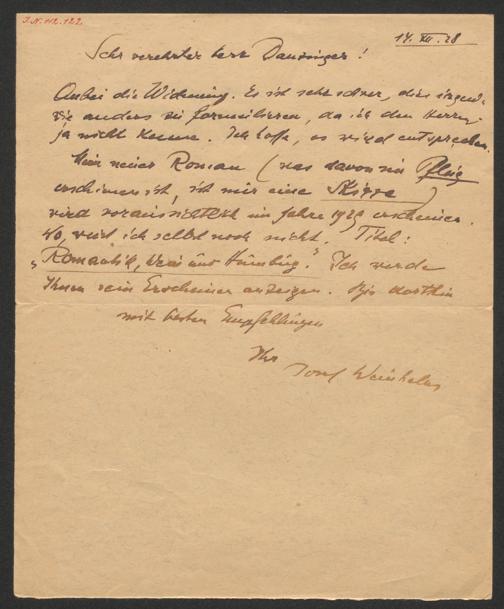 J.N. 112.122
14. XII. 28
Sehr verehrter Herr Danzinger!
Anbei die Widmung. Es ist sehr schwer, dies irgend-
wie anders zu formulieren, da ich den Herrn
ja nicht kenne. Ich hoffe, es wird entsprechen.
Mein neuer Roman (was davon im Pflug
erschienen ist, ist nur eine Skizze)
wird voraussichtlich im Jahre 1929 erscheinen.
Wo, weiß ich selbst noch nicht. Titel:
„Romantik, und Humbug." Ich werde
Ihnen sein Erscheinen anzeigen. Bis dorthin
mit besten Empfehlungen
Ihr
Josef Weinheber